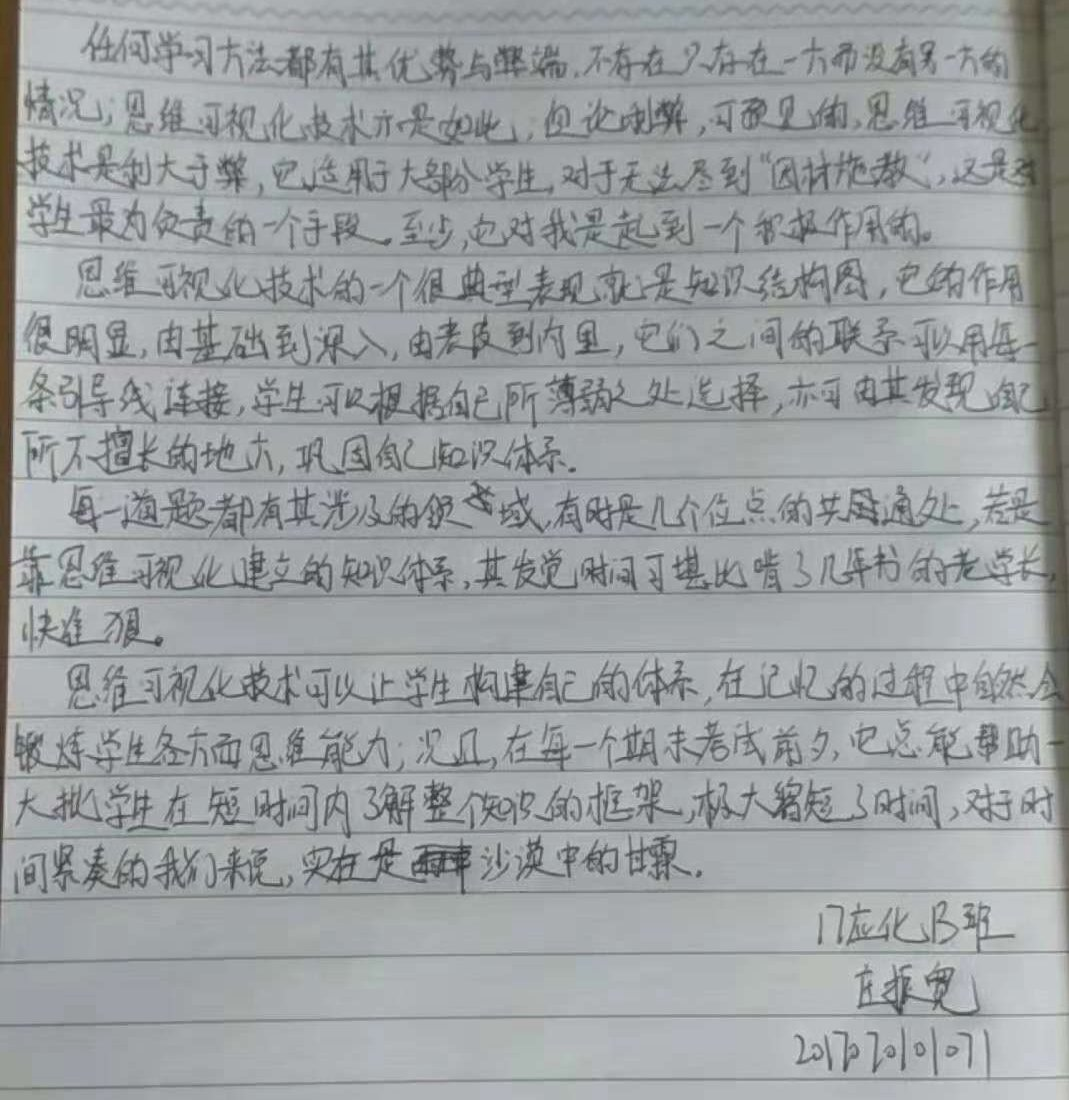 任何学习方法都有其优势与弊端,不存在只存在一方而没有另一方的
情况;思维可视化技术亦是如此,但论利弊,可预见的,思维可视化
技术是利大于弊,它适用于大部分学生,对于无法尽到“因材施教”,这是对
学生最为负责的一个手段。至少,它对我是起到一个积极作用的。
思维可视化技术的一个很典型表现就是知识结构图,它的作用
很明显,由基础到深入,由表皮到内里,它们之间的联系可以用每一
条引导线连接,学生可以根据自己所薄弱之处选择,亦可由其发现自己
所不擅长的地方,巩固自己知识体系.
每一道题都有其涉及的领域,有时是几个位点的共通处,若是
靠思维可视化建立的知识体系,其发觉时间可堪比啃了几年书的老学长,
快准狠。
思维可视化技术可以让学生构建自己的体系,在记忆的过程中自然会
锻炼学生各方面思维能力;况且,在每一个期末考试前夕,它总能帮助一
大批学生在短时间内了解整个知识的框架,极大缩短了时间,对于时
间紧凑的我们来说,实在是沙漠中的甘霖.
17应化B班
庄振宽
2017070101071